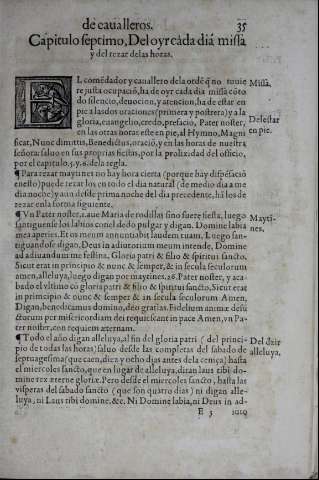 de caualleros.
35
Capitulo septimo, Del oyr cada dia missa
y del rezar de las horas.
EL comẽdador y cauallero dela ordẽ q̃ no tuuie
re justa ocupaciõ, ha de oyr cada dia missa cõto
do silencio, deuocion, y atencion, ha de estar en
pie a las dos oraciones (primera y postrera) y a la
gloria, euangelio, credo, prefacio, Pater noster,
en las otras horas este en pie, al Hymno, Magni
ficat, Nunc dimittis, Benedictus, oraciõ, y en las horas de nuestra
señora: saluo en sus proprias fiestas, por la prolixidad del officio,
por el capitulo.5. y.8. dela regla.
Missa.
Del estar
en pie.
¶ Para rezar maytines no ay hora cierta (porque hay dispẽsaciõ
enesto) puede rezar los en todo el dia natural (de medio dia a me
dia noche) y aun desde prima noche del dia precedente, há los de
rezar enla forma siguiente.
¶ Vn Pater noster, z aue Maria de rodillas sino fuere fiesta, luego
santiguense los labios conel dedo pulgar y digan. Domine labia
mea aperies. Et os meum annuntiabit laudem tuam. Luego san-
tiguandose digan, Deus in adiutorium meum intende, Domine
ad adiuuandum me festina, Gloria patri & filio & spiritui sancto.
Sicut erat in principio & nunc & semper, & in secula seculorum
amen, alleluya, luego digan por maytines.26. Pater noster, y aca
bado el vltimo con gloria patri & filio & spiritui sancto, Sicut erat
in principio & nunc & semper & in secula seculorum Amen,
Digan, benedicamus domino, deo gratias. Fidelium animæ defũ
ctorum per misericordiam dei requiescant in pace Amen, vn Pa
ter noster, con requiem æternam.
Mayti-
nes.
¶ Todo el año digan alleluya, al fin del gloria patri (del princi-
pio de todas las horas) saluo desde las completas del sabado de
septuagesima (que caen, diez y ocho dias antes dela ceniza) hasta
el miercoles sancto, que en lugar de alleluya, diran laus tibi do-
mine rex æterne gloriæ. Pero desde el miercoles sancto, hasta las
visperas del sabado sancto (que son quatro dias) ni digan alle-
luya, ni Laus tibi domine, &c. Ni Domine labia, ni Deus in ad-
Del dezir
alleluya.
E 3